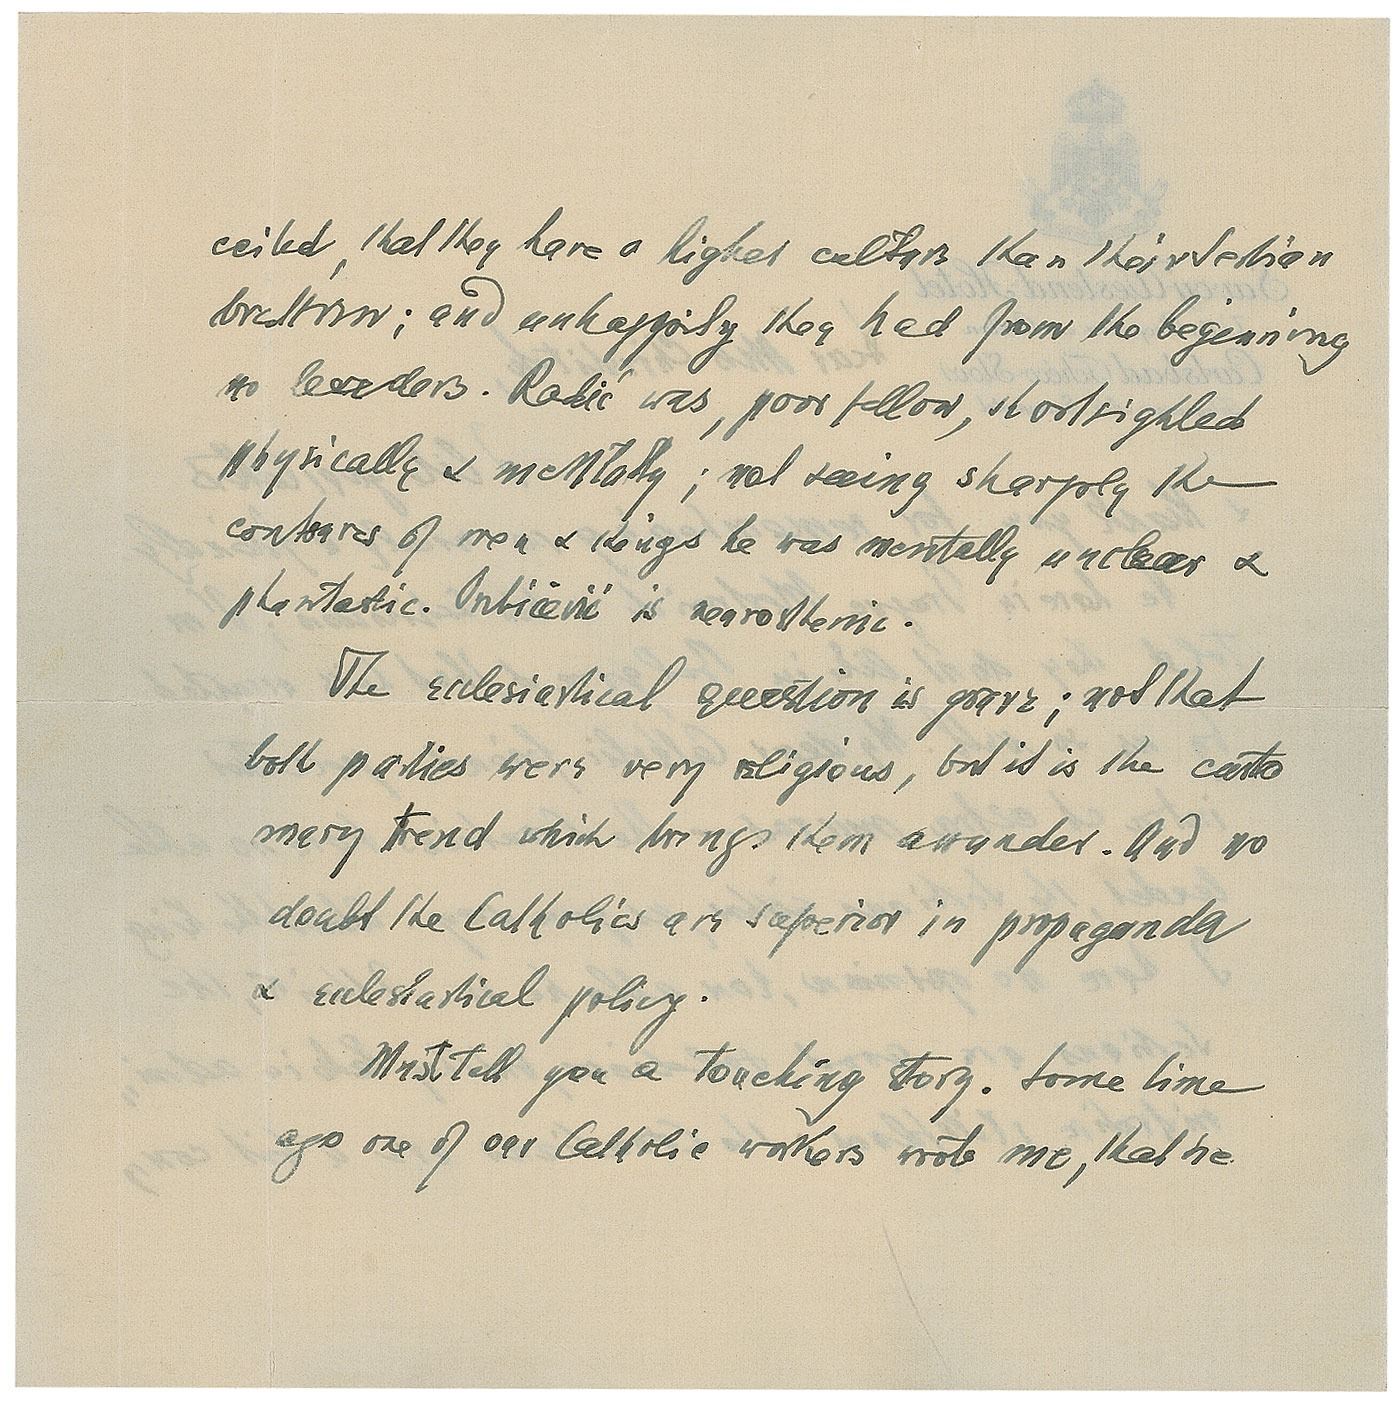 ceited, that they have a higher culture than their Serbian
brethren; and unhappily they had from the beginning
no leaders. Radić was, poor fellow, shortsighted
physically & mentally; not seeing sharply the
contours of men & things he was mentally unclear &
phantastic. Pribičević is neurosthenic.
The ecclesiastical question is grave; not that
both parties were very religious, but it is the custo
mary trend which brings them assunder. And no
doubt the Catholics are superior in propaganda
& ecclesiastical policy.
Must tell you a touching story. Some time
ago one of our Catholic workers wrote me, that we